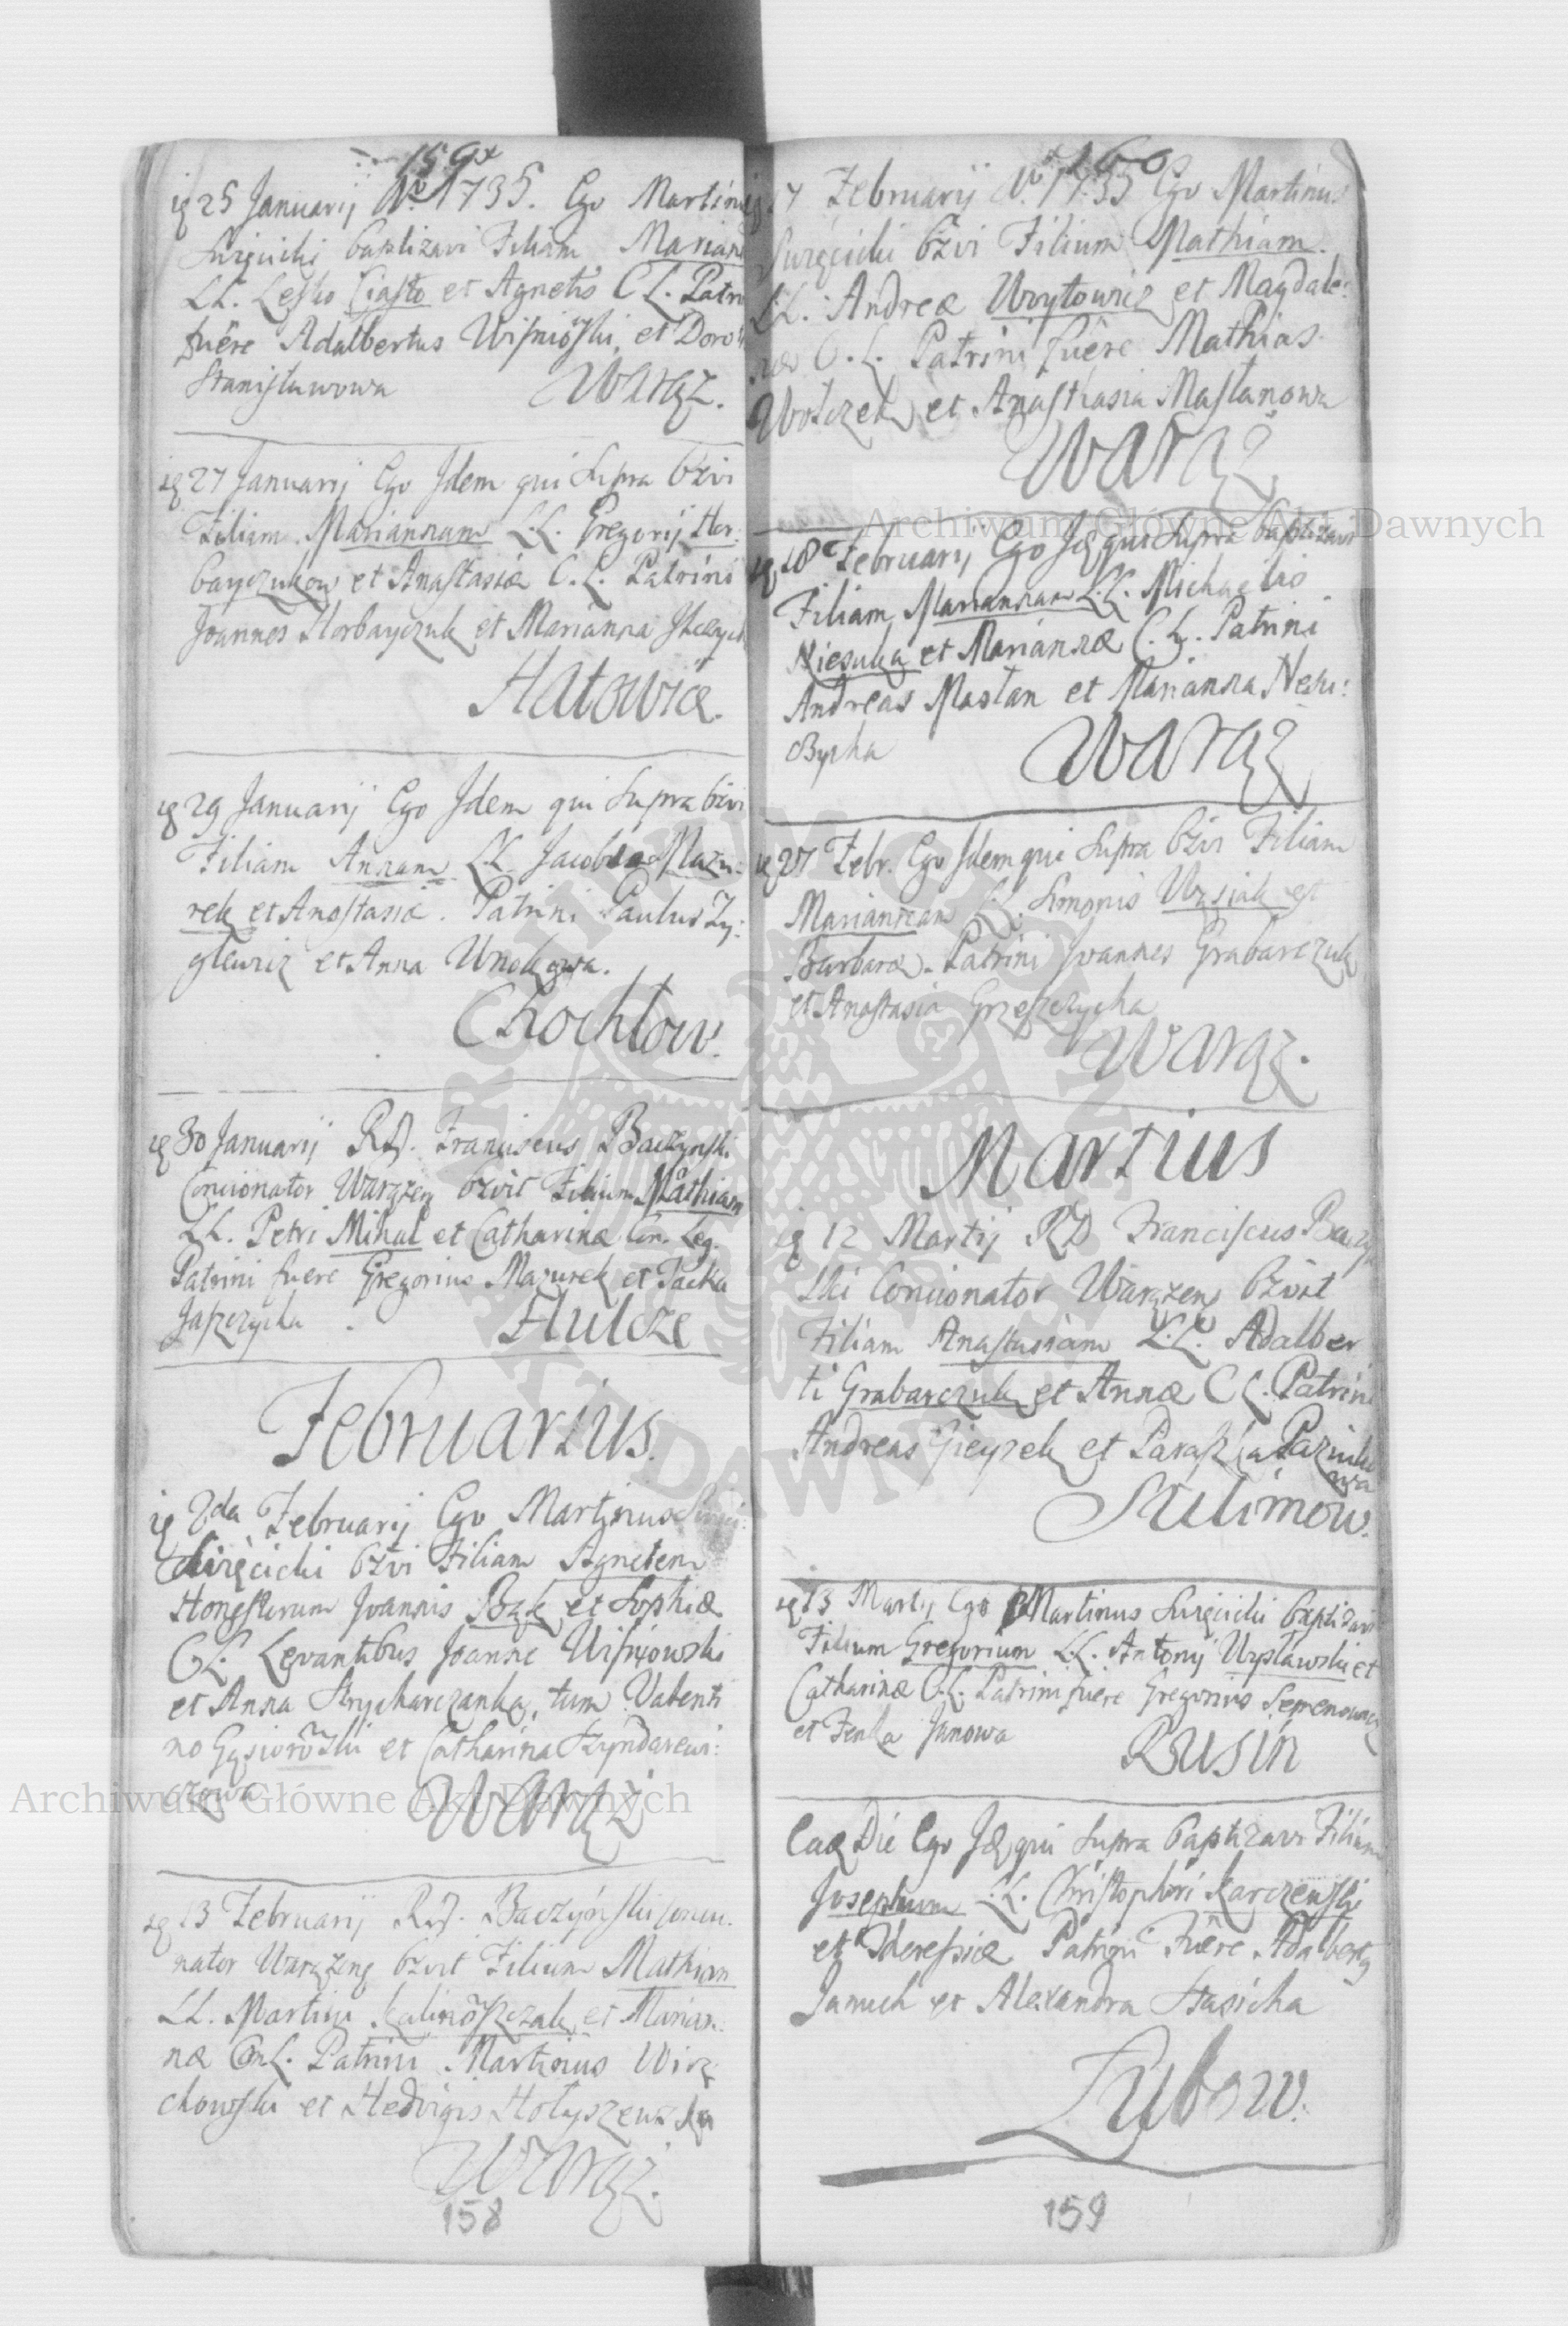 159
25 Januarij Ao 1735. Ego Martinus
Suręcicki baptizavi Filiam Mariann
LL. Lesko Ciasto et Agnetis C L. Patri
fuêre Adalbertus Wiśniõski, et Doro
Stanisławowa Warąz.
27 Januarij Ego Idem qui Supra bzvi
Filiam Mariannam L.L. Gregorij Hor:
bayczukow et Anastasiæ C. L. Patrini
Joannes Horbayczuk et Marianna
Hatowice.
29 Januarij Ego Idem qui Supra bzvi
Filiam Annam LL Jacobi Mazu:
rek et Anastasiæ. Patrini Paulus Zy:
glewicz et Anna
Chochłow.
30 Januarij RD. Franciscus Baczynski
Concionator Warązen bzvit Filium Mathiam
LL. Petri Mihal et Catharinæ Con. Leg.
Patrini fuere Gregorius Mazurek et Packa
Jaszczycha. Hulcze
Februarius.
2da Februarij Ego Martinus
Suręcicki bzvi Filiam Agnetem
Honestorum Joannis Bąk et Sophiæ
C L. Levantibus Joanne Wiśniowski
et Anna Strycharczanka, tum Valenti
no Gąsiorõski et Catharina Szyndarewi:
czowa Warąż
13 Februarij RD. Baczyński concio.
nator Warązens bzvit Filium Mathiam
LL. Martini Kalinõszczak et Marian:
næ Con L. Patrini Martinus Wirz
chowski et Hedvigis Hołyszewska
Warąż.
158
160
17 Februarij Ao 1735 Ego Martinus
Suręcicki bzvi Filium Mathiam.
LL. Andreæ Woytowicz et Magdale:
næ C. L. Patrini fuêre Mathias
Wołczek et Anasthasia Masłanowa
Warąż
18 Februarij Ego Id qui Supra baptizavi
Filiam Mariannam L.L. Michaelis
Niesuka et Mariannæ C. L. Patrini
Andreas Masłan et Marianna
Warąż
27 Febr. Ego Idem qui Supra bzvi Filiam
Mariannam LL. Simonis Wosiak et
Barbaræ. Patrini Joannes Grabarczuk
et Anastasia Grzeszczycha
Warąz.
Martius
12 Martij RD Franciscus Baczyń
ski Concionator Warązens bzvit
Filiam Anastasiam LL. Adalber
ti Grabarczuk et Annæ C L. Patrini
Andreas Gieyzek et Paraszka Paziuko
wa
Sulimow.
13 Martij Ego Martinus Suręcicki baptizavi
Filium Gregorium LL. Antonij Wysławski et
Catharinæ C.L. Patrini fuêre Gregorius Semenowicz
et Fenka Janowa Rusin
Eadē Die Ego Idē qui Supra baptizavi Filium
Josephum LL. Christophori Karczewski
et Theressiæ Patrini Fuêre Adalbertg
Januch et Alexandra Stasicha
Lubow.
159
Archiwum Główne Akt Dawnych
Archiwum Główne Akt Dawnych
ARCHIWUM GŁÓWNE AKT DAWNYCH